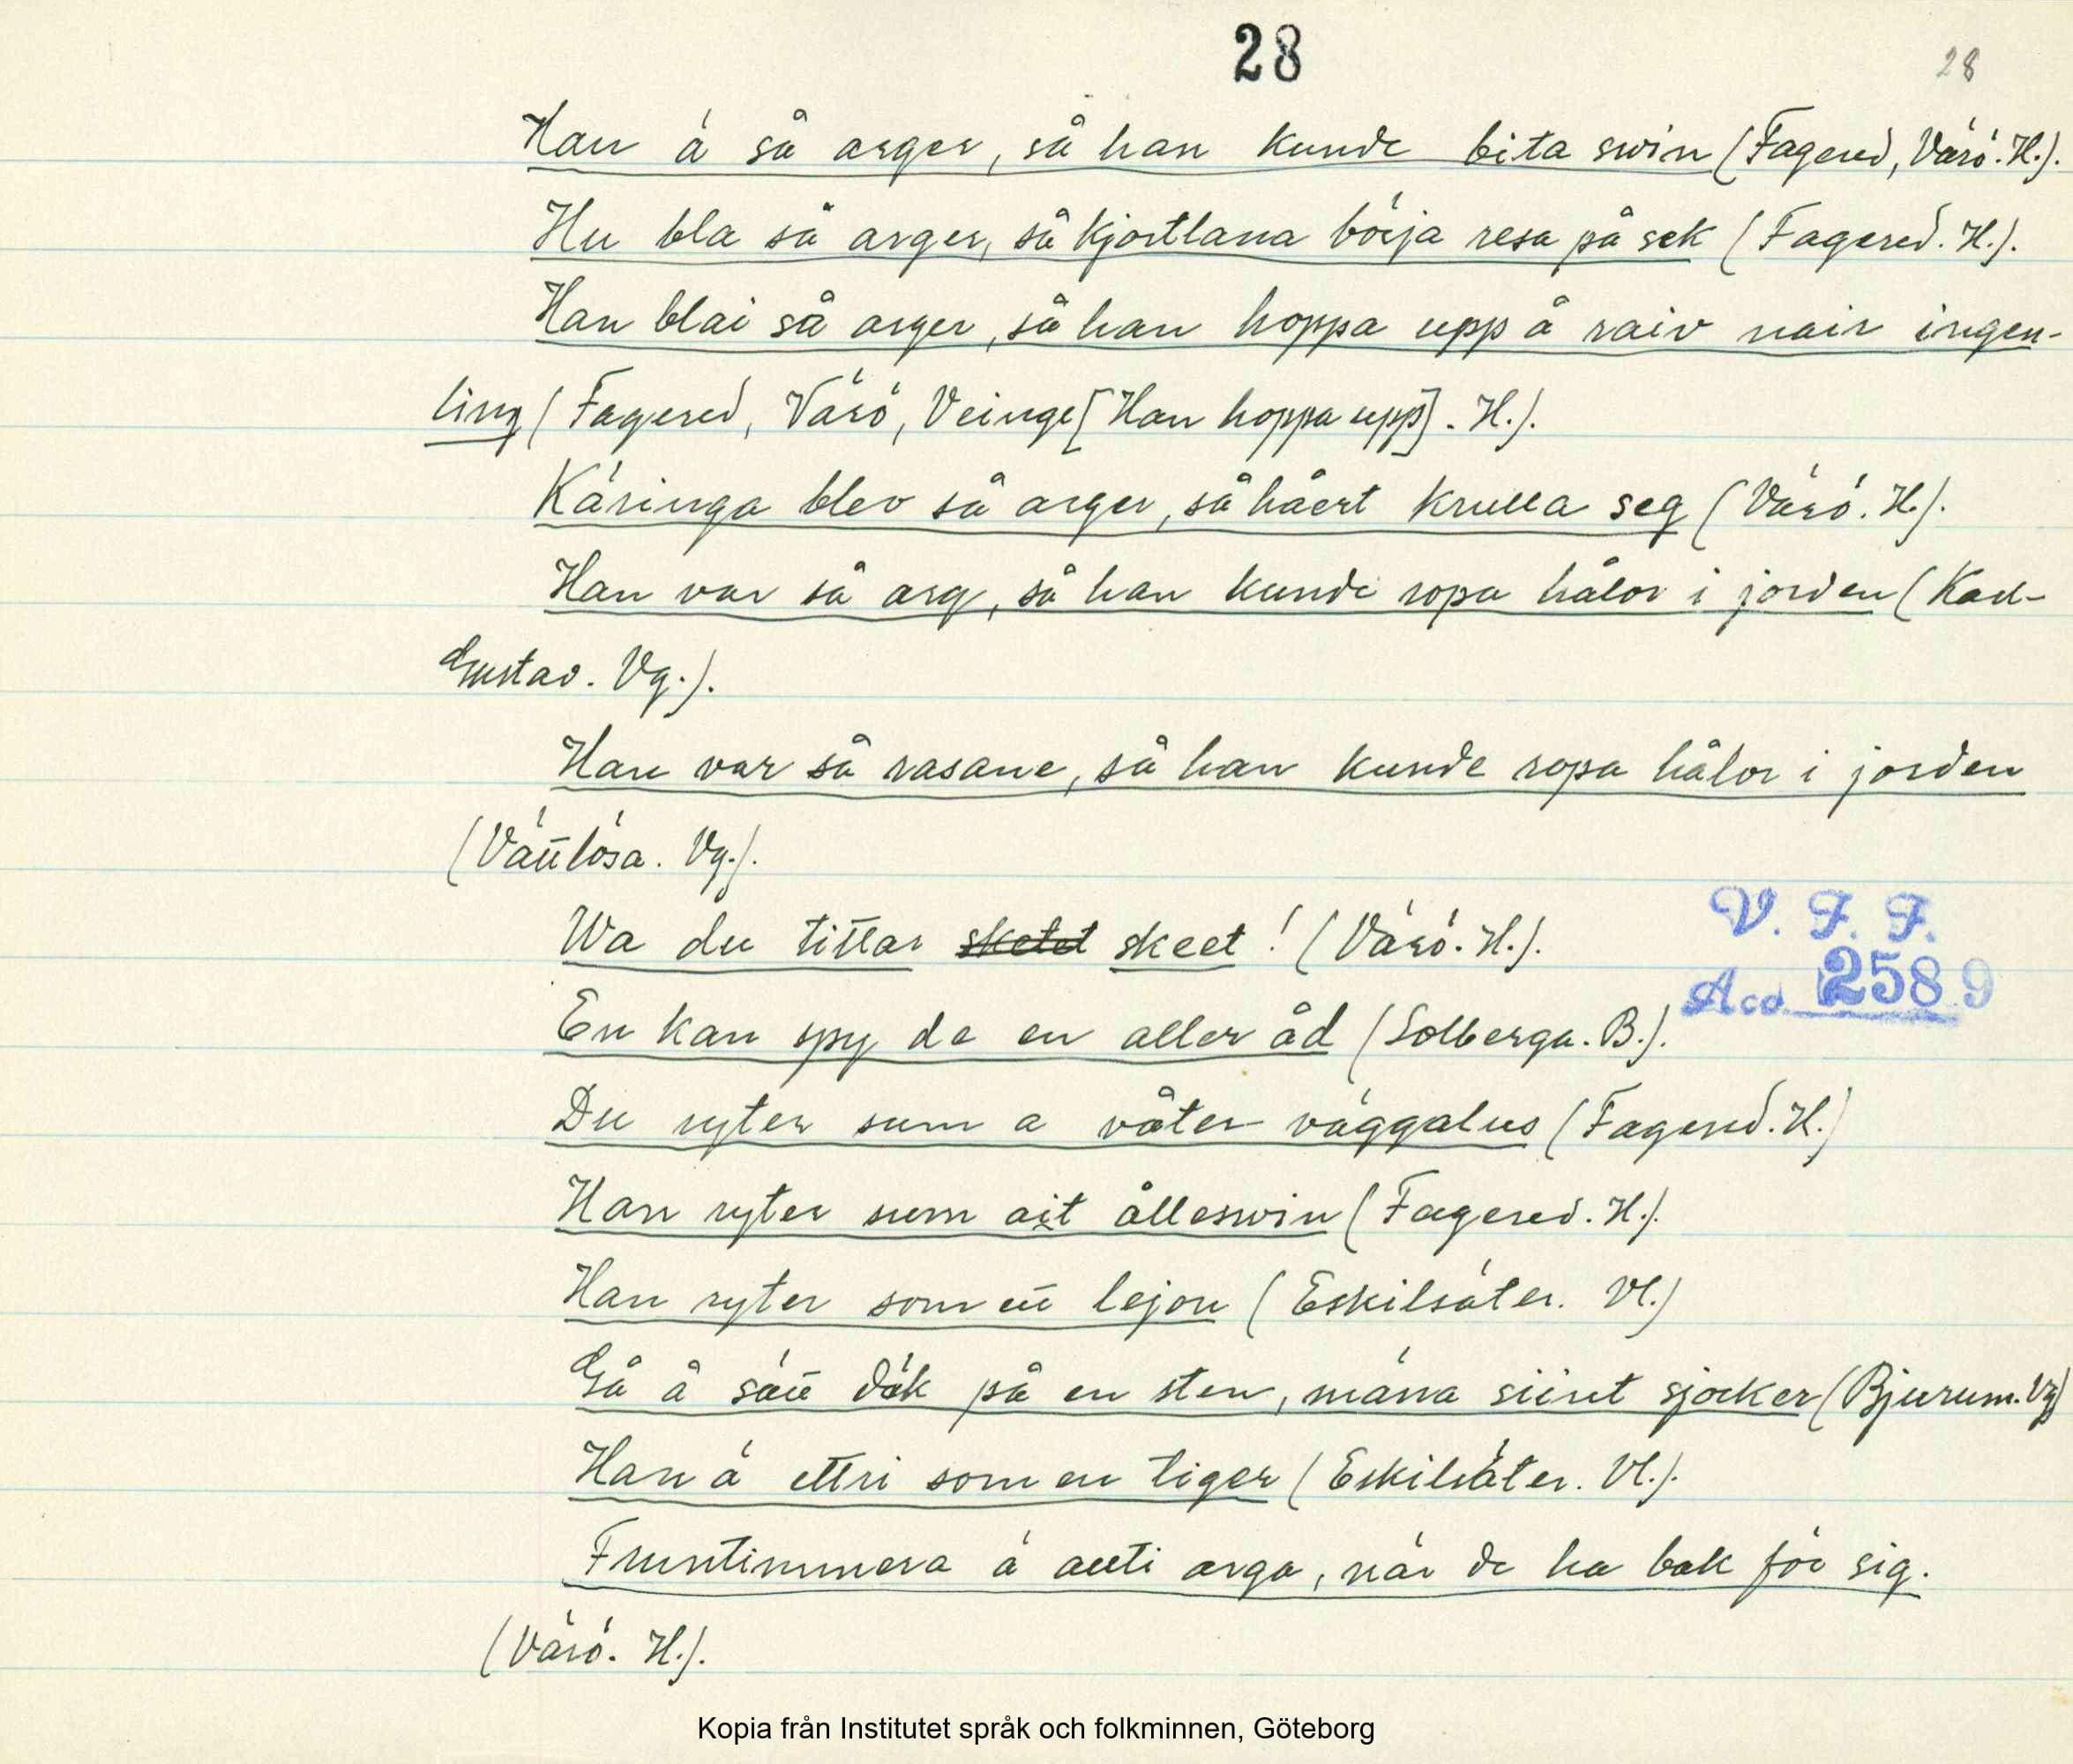 28
28
Han ä så arger, så han kunde bita swin (Fagered, Värö. H.).
Hu bla så arger, så kjortlana börja resa på sek (Fagered. H.).
Han blai så arger, så han hoppa upp å raiv nair ingen-
ting (Fagered, Värö, Veinge [Han hoppa upp]. H.).
Käringa blev så arger, så håert krulla seg (Värö. H.).
Han var så arg, så han kunde ropa hålor i jorden (Karl-
Gustav. Vg.).
Han var så rasane, så han kunde ropa hålor i jorden
(Vättlösa. Vg.).
Wa du tittar sketet skeet! (Värö. H.).
V. F. F.
Acc. 2589
En kan spy de en aller åd (Solberga. B.).
Du ryter sum a våter väggalus (Fagered. H.)
Han ryter sum ait ålleswin (Fagered. H.).
Han ryter som ett lejon (Eskilsäter. Vl.)
Gå å sätt däk på en sten, männa siint sjocker (Bjurum. Vg)
Han ä ettri som en tiger (Eskilsäter. Vl.).
Fruntimmera ä allti arga, när de ha bak för sig.
(Värö. H.).
Kopia från Institutet språk och folkminnen, Göteborg